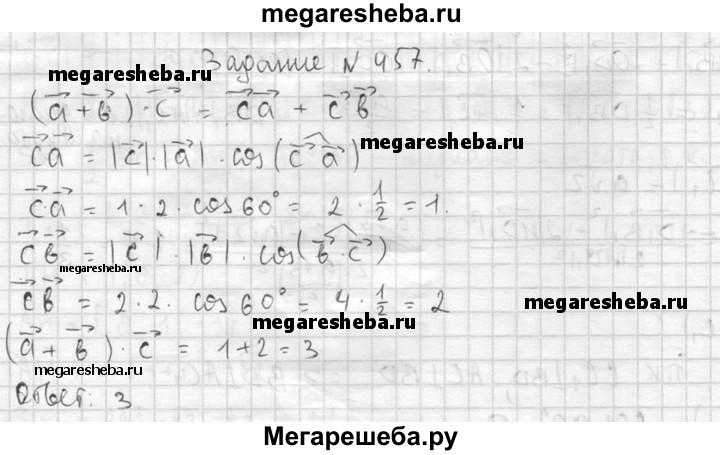 megaresheba.ru
Задание N 457.
megaresheba.ru megaresheba.ru
(a⃗ + b⃗) · c⃗ = c⃗a⃗ + c⃗b⃗
c⃗a⃗ = |c⃗|·|a⃗| · cos(c⃗ a⃗) megaresheba.ru
c⃗·a⃗ = 1 · 2 · cos 60° = 2 · 1/2 = 1.
c⃗ b⃗ = |c⃗| · |b⃗| · cos(b⃗ · c⃗)
megaresheba.ru
c⃗b⃗ = 2 · 2 · cos 60° = 4 · 1/2 = 2 megaresheba.ru
megaresheba.ru
(a⃗ + b⃗) · c⃗ = 1 + 2 = 3
megaresheba.ru
Ответ: 3 megaresheba.ru
Мегарешеба.ру